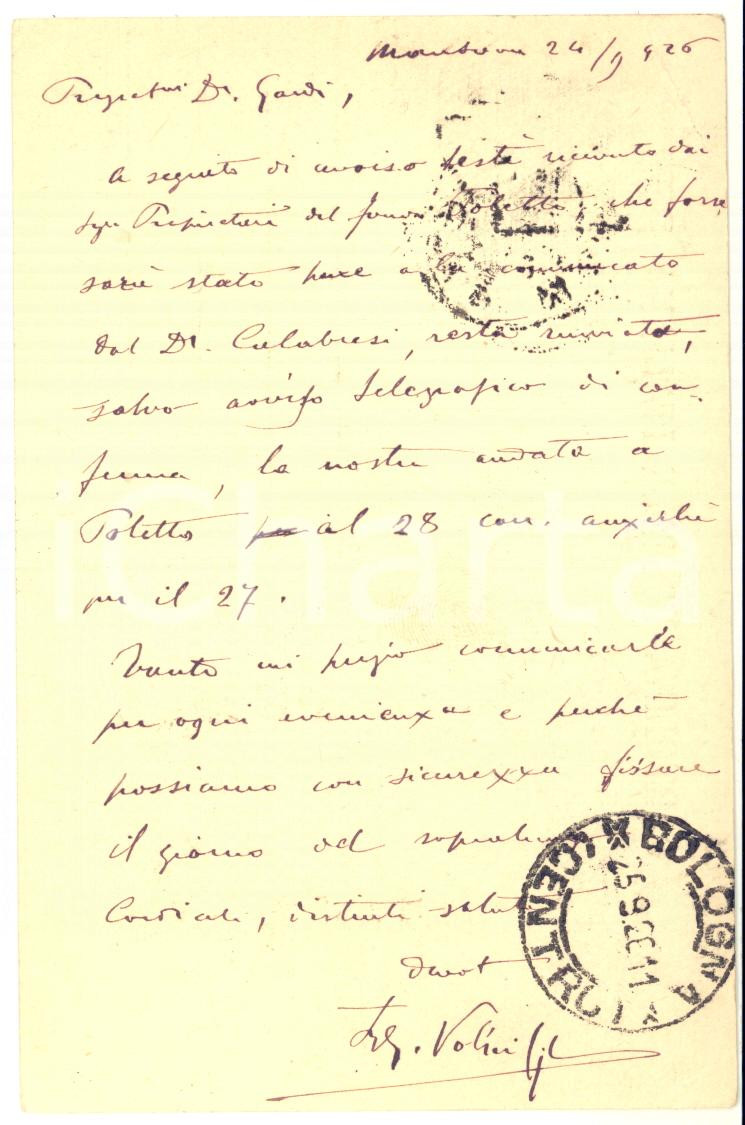 24/9 926
Dr. Gardi,
A seguito di avviso testè ricevuto dai
Sigg. Proprietari del fondo Poletto che forse
sarà stato pure a Lei comunicato
dal Dr. Calabresi, resta rinviata,
salvo avviso telegrafico di con-
ferma, la nostra andata a
Poletto al 28 corr. anzichè
per il 27.
Tanto mi pregio comunicarle
per ogni evenienza e perchè
possiamo con sicurezza fissare
il giorno del sopraluogo
Cordiali, distinti saluti
devot
Ing.
BOLOGNA
(CENTRO)
25.9.26.11
iCharta